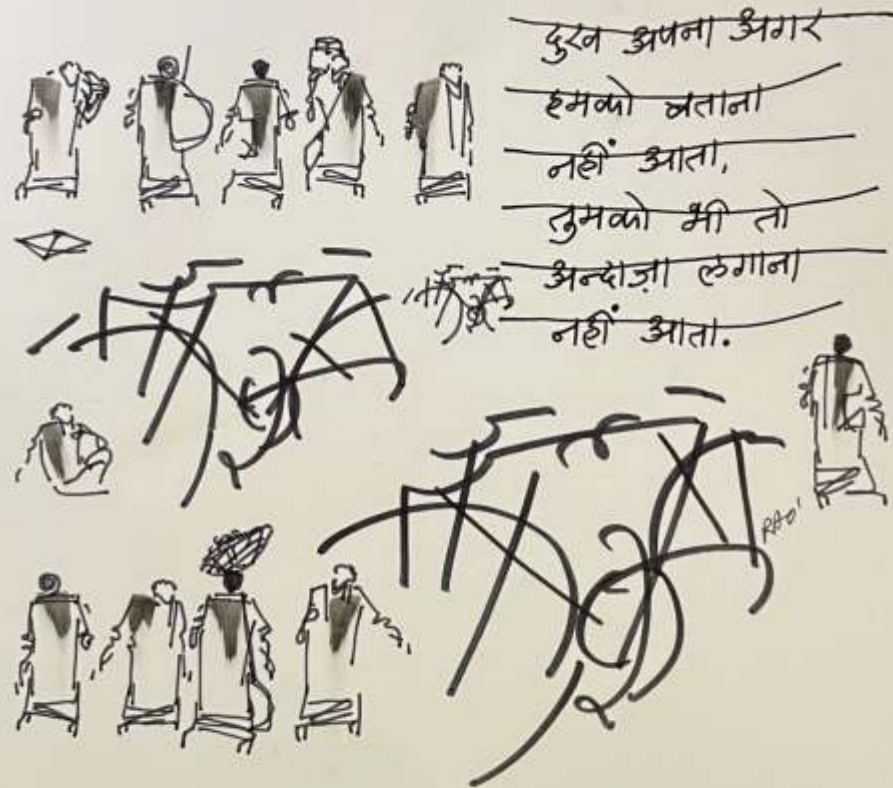 दुख अपना अगर
हमको बताना
नहीं आता,
तुमको भी तो
अन्दाज़ा लगाना
नहीं आता.
RAO'